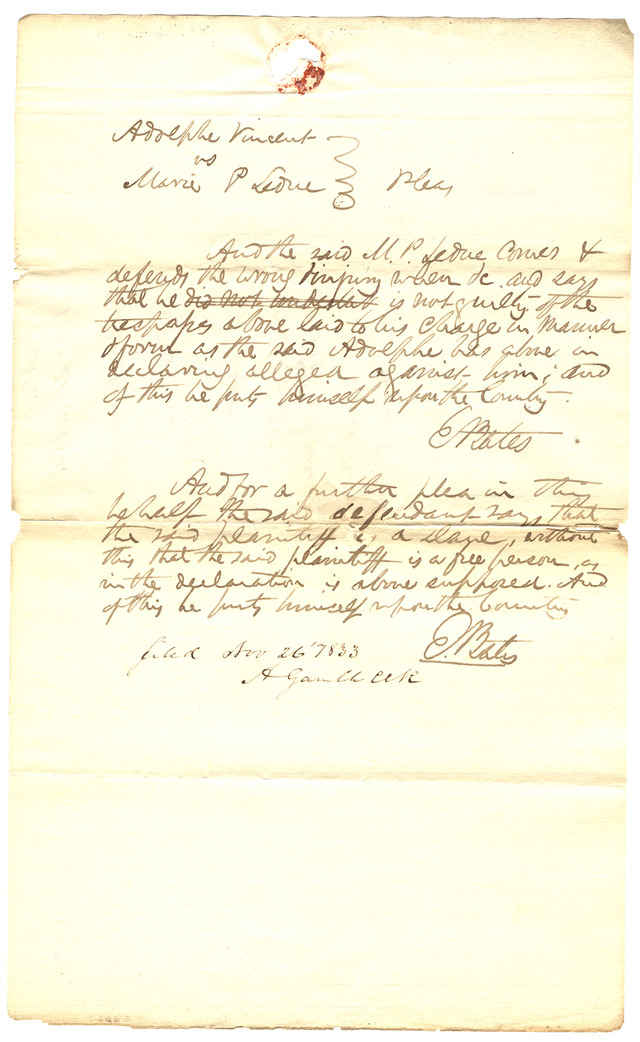 Adolphe Vincent
vs
Marie P Leduc } Pleas
And the said M. P. Leduc Comes &
defends the wrong & injury when &c. and says
that he did not is not guilty of the
trespasses above laid to his charge in manner
& form as the said Adolphe has above in
declaring alleged against him; and
of this he puts himself upon the Country.
E Bates
And for a further plea in this
behalf the said defendant says that
the said plaintiff is a slave, without
this that the said plaintiff is a free person, as
in the declaration is above supposed. And
of this he puts himself upon the Country
E. Bates
filed Nov 26th 1833
A Gamble Clk